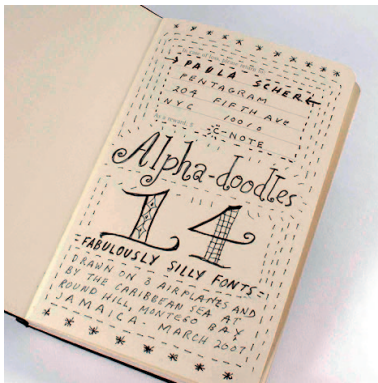 → PAULA SCHER ←
PENTAGRAM
204 FIFTH AVE
NYC 10010
As a reward: $
C-NOTE
Alpha-doodles
14
-FABULOUSLY SILLY FONTS-
DRAWN ON 3 AIRPLANES AND
BY THE CARIBBEAN SEA AT
ROUND HILL, MONTEGO BAY,
JAMAICA. MARCH 2007